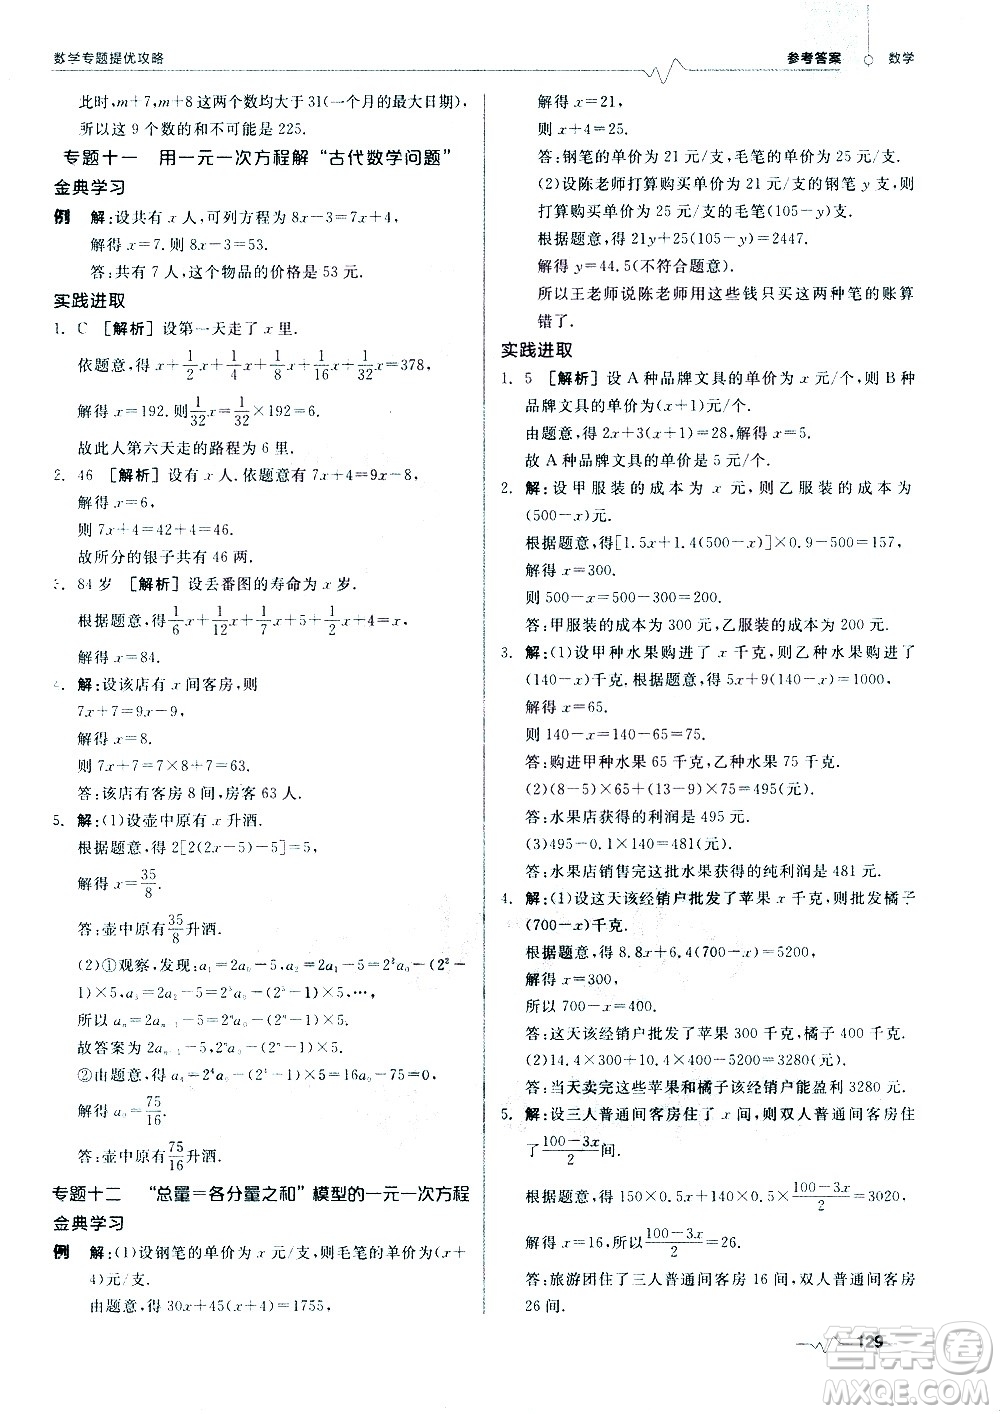 数学专题提优攻略
参考答案 数学
此时,m+7,m+8这两个数均大于31(一个月的最大日期),
所以这9个数的和不可能是225.
专题十一 用一元一次方程解“古代数学问题”
金典学习
例 解:设共有x人,可列方程为8x-3=7x+4,
解得x=7.则8x-3=53.
答:共有7人,这个物品的价格是53元.
实践进取
1. C [解析]设第一天走了x里.
依题意,得x+1/2x+1/4x+1/8x+1/16x+1/32x=378,
解得x=192.则1/32x=1/32×192=6.
故此人第六天走的路程为6里.
2. 46 [解析]设有x人.依题意有7x+4=9x-8,
解得x=6,
则7x+4=42+4=46.
故所分的银子共有46两.
3. 84岁 [解析]设丢番图的寿命为x岁.
根据题意,得1/6x+1/12x+1/7x+5+1/2x+4=x,
解得x=84.
4. 解:设该店有x间客房,则
7x+7=9x-9,
解得x=8.
则7x+7=7×8+7=63.
答:该店有客房8间,房客63人.
5. 解:(1)设壶中原有x升酒.
根据题意,得2[2(2x-5)-5]=5,
解得x=35/8.
答:壶中原有35/8升酒.
(2)①观察,发现:a₁=2a₀-5,a₂=2a₁-5=2²a₀-(2²-
1)×5,a₃=2a₂-5=2³a₀-(2³-1)×5,…,
所以aₙ=2aₙ₋₁-5=2ⁿa₀-(2ⁿ-1)×5.
故答案为2aₙ₋₁-5;2ⁿa₀-(2ⁿ-1)×5.
②由题意,得a₄=2⁴a₀-(2⁴-1)×5=16a₀-75=0,
解得a₀=75/16.
答:壶中原有75/16升酒.
专题十二 “总量=各分量之和”模型的一元一次方程
金典学习
例 解:(1)设钢笔的单价为x元/支,则毛笔的单价为(x+
4)元/支.
由题意,得30x+45(x+4)=1755,
解得x=21,
则x+4=25.
答:钢笔的单价为21元/支,毛笔的单价为25元/支.
(2)设陈老师打算购买单价为21元的钢笔y支,则
打算购买单价为25元的毛笔(105-y)支.
根据题意,得21y+25(105-y)=2447.
解得y=44.5(不符合题意).
所以王老师说陈老师用这些钱只买这两种笔的账算
错了.
实践进取
1. 5 [解析]设A种品牌文具的单价为x元/个,则B种
品牌文具的单价为(x+1)元/个.
由题意,得2x+3(x+1)=28,解得x=5.
故A种品牌文具的单价是5元/个.
2. 解:设甲服装的成本为x元,则乙服装的成本为
(500-x)元.
根据题意,得[1.5x+1.4(500-x)]×0.9-500=157,
解得x=300.
则500-x=500-300=200.
答:甲服装的成本为300元,乙服装的成本为200元.
3. 解:(1)设甲种水果购进了x千克,则乙种水果购进了
(140-x)千克.根据题意,得5x+9(140-x)=1000,
解得x=65.
则140-x=140-65=75.
答:购进甲种水果65千克,乙种水果75千克.
(2)(8-5)×65+(13-9)×75=495(元).
答:水果店获得的利润是495元.
(3)495-0.1×140=481(元).
答:水果店销售完这批水果获得的纯利润是481元.
4. 解:(1)设这天该经销户批发了苹果x千克,则批发橘子
(700-x)千克.
根据题意,得8.8x+6.4(700-x)=5200,
解得x=300,
所以700-x=400.
答:这天该经销户批发了苹果300千克,橘子400千克.
(2)14.4×300+10.4×400-5200=3280(元).
答:当天卖完这些苹果和橘子该经销户能盈利3280元.
5. 解:设三人普通间客房住了x间,则双人普通间客房住
了(100-3x)/2间.
根据题意,得150x+140×(100-3x)/2=3020,
解得x=16,所以(100-3x)/2=26.
答:旅游团住了三人普通间客房16间,双人普通间客房
26间.
129
答案圈
MXQE.COM